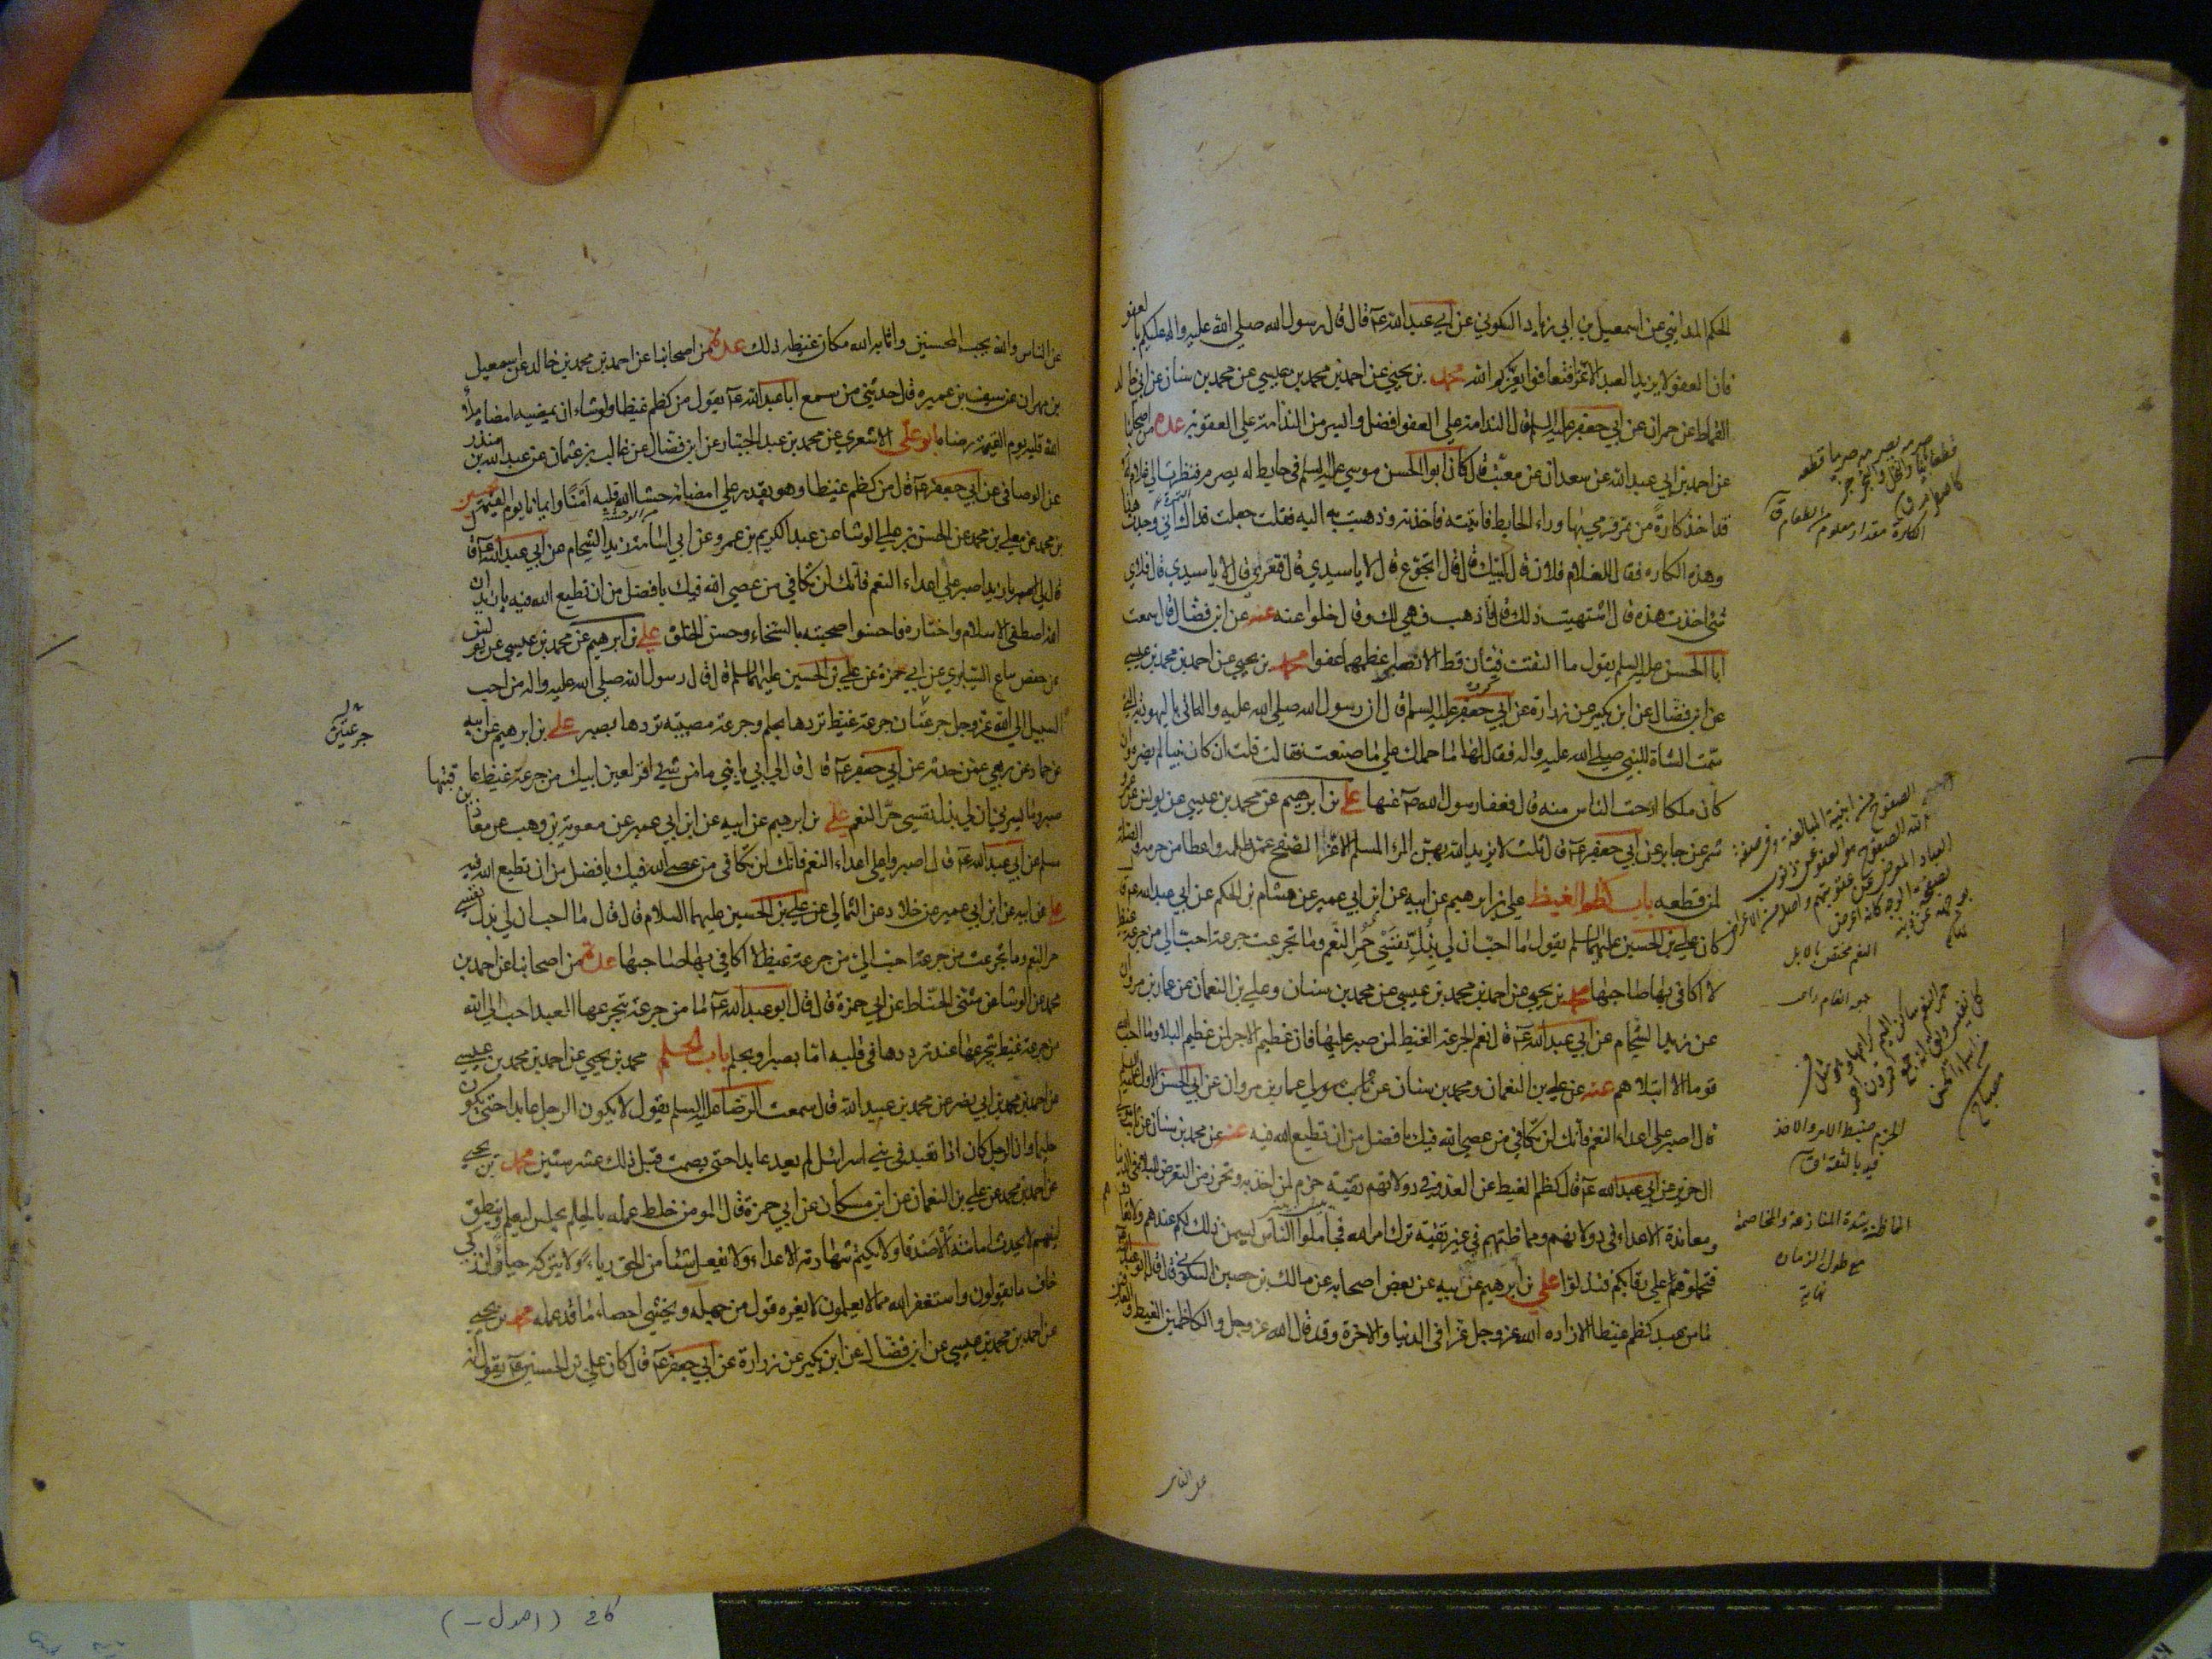 الحكم المدايني عن اسمعيل بن ابي زياد السكوني عن ابي عبد الله عه قال قال رسول الله صلى الله عليه واله عليكم بالعفو
فان العفو لا يزيد العبد الا عزا فتعافوا يعزكم الله محمد بن يحيى عن احمد بن محمد بن عيسى عن محمد بن سنان عن ابي خالد
القماط عن حمران عن ابي جعفر عليه السلم قال الندامة على العفو افضل وايسر من الندامة على العقوبة عدة من اصحابنا
عن احمد بن ابي عبد الله عن سعدان عن معتب قال كان ابو الحسن موسى عليه السلم في حايط له يصرم فنظرت الى غلام له
قد اخذ كارة من تمر فرمى بها وراء الحايط فاتيته فاخذته وذهبت به اليه فقلت جعلت فداك اني وجدت هذا
وهذه الكاره فقال للغلام فلان قال لبيك قال اتجوع قال لا يا سيدي قال فتعرى قال لا يا سيدي قال فلاي
شئ اخذت هذه قال اشتهيت ذلك قال اذهب فهي لك وقال خلوا عنه عنه عن ابن فضال قال سمعت
ابا الحسن عليه السلم يقول ما التقت فئتان قط الا نصر اعظمهما عفوا محمد بن يحيى عن احمد بن محمد بن عيسى
عن ابن فضال عن ابن بكير عن زرارة عن ابي جعفر عليه السلم قال ان رسول الله صلى الله عليه واله اتى باليهودية التي
سمت الشاة للنبي صلى الله عليه واله فقال لها ما حملك على ما صنعت فقالت قلت ان كان نبيا لم يضره وان
كان ملكا ارحت الناس منه قال فعفا رسول الله صه عنها علي بن ابرهيم عن محمد بن عيسى عن يونس عن عمرو بن
شمر عن جابر عن ابي جعفر عه قال ثلث لا يزيد الله بهن المرء المسلم الا عزا الصفح عمن ظلمه واعطا من حرمه والصلة
لمن قطعه باب كظم الغيظ علي بن ابرهيم عن ابيه عن ابن ابي عمير عن هشام بن الحكم عن ابي عبد الله عه قال
كان علي بن الحسين عليهما السلم يقول ما احب ان لي بذل نفسي حمر النعم وما تجرعت جرعة احب الي من جرعة غيظ
لا اكافي بها صاحبها محمد بن يحيى عن احمد بن محمد بن عيسى عن محمد بن سنان وعلي بن النعمان عن عمار بن مروان
عن زيد الشحام عن ابي عبد الله عه قال نعم الجرعة الغيظ لمن صبر عليها فان عظيم الاجر لمن عظيم البلا وما احب الله
قوما الا ابتلاهم عنه عن علي بن النعمان ومحمد بن سنان عن ثابت مولى عمار بن مروان عن ابي الحسن الاول عليه السلم
قال اصبر على اعداء النعم فانك لن تكافي من عصى الله فيك بافضل من ان تطيع الله فيه عنه عن محمد بن سنان عن ثابت مولى
ال حريز عن ابي عبد الله عه قال كظم الغيظ عن العدو في دولاتهم تقية حزم لمن اخذ به وتحرز من التعرض للبلاء في الدنيا
ومعاندة الاعداء في دولاتهم ومماظتهم في غير تقية ترك امر الله فجاملوا الناس يسمن ذلك لكم عندهم ولا تعادوهم
فتحملوهم على رقابكم فتذلوا علي بن ابرهيم عن ابيه عن بعض اصحابه عن مالك بن حصين السكوني قال قال ابو عبد الله عه
ما من عبد كظم غيظا الا زاده الله عز وجل عزا في الدنيا والاخرة وقد قال الله عز وجل والكاظمين الغيظ والعافين
عن الناس
الكارة مقدار معلوم من الطعام ق
النعم مختص بالابل
الحزم ضبط الامر والاخذ
فيه بالثقة ق
المماظة شدة المنازعة والمخاصمة
مع طول الزمان
نهاية
عن الناس والله يحب المحسنين واثابه الله مكان غيظه ذلك عدة من اصحابنا عن احمد بن محمد بن خالد عن اسمعيل
بن مهران عن سيف بن عميره قال حدثني من سمع ابا عبد الله عه يقول من كظم غيظا ولو شاء ان يمضيه امضاه ملأ
الله قلبه يوم القيمة رضاه ابو علي الاشعري عن محمد بن عبد الجبار عن ابن فضال عن غالب بن عثمان عن عبد الله بن منذر
عن الوصافي عن ابي جعفر عه قال من كظم غيظا وهو يقدر على امضائه حشا الله قلبه امنا وايمانا يوم القيمة الحسين
بن محمد عن معلى بن محمد عن الحسن بن علي الوشا عن عبد الكريم بن عمرو عن ابي اسامة زيد الشحام عن ابي عبد الله عه قال
قال لي يا زيد اصبر على اعداء النعم فانك لن تكافي من عصى الله فيك بافضل من ان تطيع الله فيه يا زيد ان
الله اصطفى الاسلام واختاره فاحسنوا صحبته بالسخاء وحسن الخلق علي بن ابرهيم عن محمد بن عيسى عن يونس
عن حفص بياع السابري عن ابي حمزة عن علي بن الحسين عليهما السلم قال قال رسول الله صلى الله عليه واله من احب
السبيل الى الله عز وجل جرعتان جرعة غيظ تردها بحلم وجرعة مصيبة تردها بصبر علي بن ابرهيم عن ابيه
جرعتين
عن حماد عن ربعي عمن حدثه عن ابي جعفر عه قال قال لي ابي يا بني ما من شئ اقر لعين ابيك من جرعة غيظ عاقبتها
صبر وما يسرني ان لي بذل نفسي حمر النعم علي بن ابرهيم عن ابيه عن ابن ابي عمير عن معوية بن وهب عن معاذ بن
مسلم عن ابي عبد الله عه قال اصبروا على اعداء النعم فانك لن تكافي من عصى الله فيك بافضل من ان تطيع الله فيه
علي عن ابيه عن ابن ابي عمير عن خلاد عن الثمالي عن علي بن الحسين عليهما السلام قال قال ما احب ان لي بذل نفسي
حمر النعم وما تجرعت من جرعة احب الي من جرعة غيظ لا اكافي بها صاحبها عدة من اصحابنا عن احمد بن
محمد عن الوشا عن مثنى الحناط عن ابي حمزة قال قال ابو عبد الله عه ما من جرعة يتجرعها العبد احب الى الله
من جرعة غيظ يتجرعها عند ترددها في قلبه اما بصبر او بحلم باب الحلم محمد بن يحيى عن احمد بن محمد بن عيسى
عن احمد بن محمد بن ابي نصر عن محمد بن عبيد الله قال سمعت الرضا عليه السلم يقول لا يكون الرجل عابدا حتى يكون
حليما وان الرجل كان اذا تعبد في بني اسرائيل لم يعد عابدا حتى يصمت قبل ذلك عشر سنين محمد بن يحيى
عن احمد بن محمد عن علي بن النعمان عن ابن مسكان عن ابي حمزة قال المومن خلط عمله بالحلم يجلس ليعلم وينطق
ليفهم لا يحدث امانته الاصدقا ولا يكتم شهادته الاعداء ولا يفعل شيئا من الحق رياء ولا يتركه حياء ان زكي
خاف ما يقولون واستغفر الله مما لا يعلمون لا يغره قول من جهله ويخشى احصاء ما قد عمله محمد بن يحيى
عن احمد بن محمد بن عيسى عن ابن فضال عن ابن بكير عن زرارة عن ابي جعفر عه قال كان علي بن الحسين عه يقول انه
كافي (اصول -)